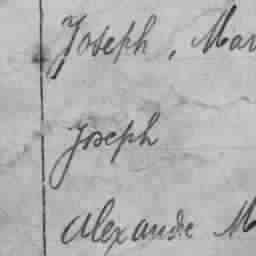 Joseph, Mar
Joseph
Alexandre M